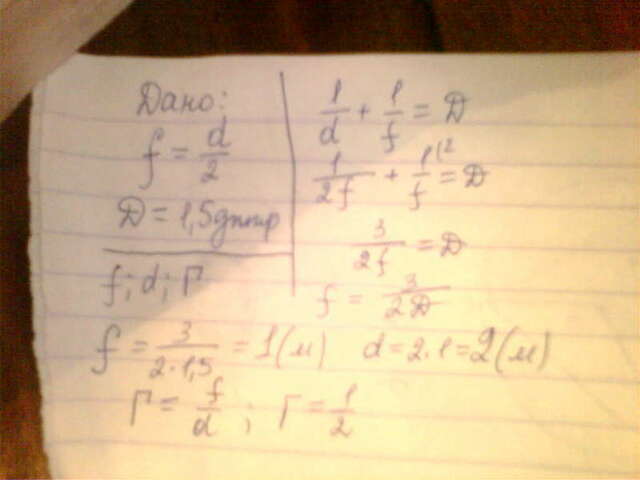 Дано:
f = d/2
D = 1,5 дптр
f; d; Г
1/d + 1/f = D
1/2f + 1/f |2 = D
3/2f = D
f = 3/2D
f = 3/2·1,5 = 1(м) d = 2·1 = 2(м)
Г = f/d ; Г = 1/2